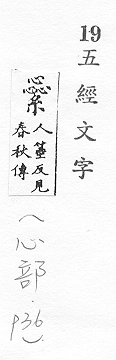 19
五經文字
繠
人菙反見
春秋傳
(心部.P36)